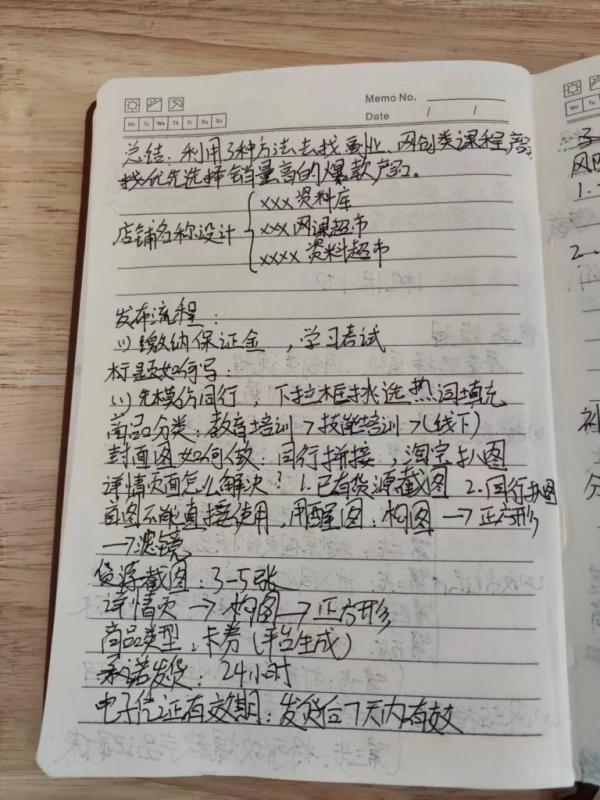 Memo No.
Mo Tu We Th Fr Sa Su
Date / /
总结：利用3种方法去找副业、网创类课程，
优先选择销量高的爆款产品。
xxx资料库
店铺名称设计
xxx网课超市
xxxx资料超市
发布流程：
(1)缴纳保证金，学习考试
标题如何写：
(1)先模仿同行，下拉框挑选热词填充
商品分类：教育培训>技能培训>(线下)
封面图如何做：同行拼接，淘宝扒图
详情页面怎么解决？1.已有货源截图 2.同行扒图
图不能直接使用，用醒图：构图→正方形
→滤镜
货源截图：3-5张
详情页→构图→正方形
商品类型：卡券(平台生成)
承诺发货：24小时
电子凭证有效期：发货后7天内有效